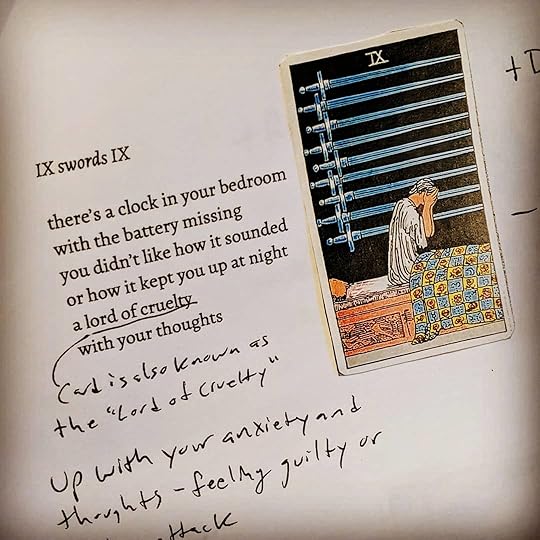 IX swords IX
there's a clock in your bedroom
with the battery missing
you didn't like how it sounded
or how it kept you up at night
a lord of cruelty
with your thoughts
Card is also known as
the "Lord of Cruelty"
Up with your anxiety and
thoughts - feeling guilty or
attack
IX
+D
-